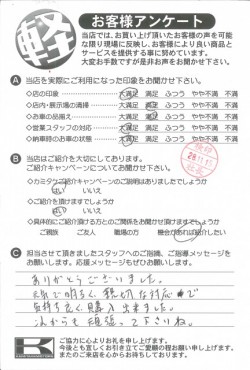 軽
お客様アンケート
当店では、お買い上げ頂いたお客様の声を可能
な限り現場に反映し、お客様により良い商品と
サービスを提供する事に努めています。
大変お手数ですが是非お声をお聞かせ下さい。
A 当店を実際にご利用になった印象をお聞かせ下さい。
◇店の印象 大満足 満足 ふつう やや不満 不満
◇店内・展示場の清掃 大満足 満足 ふつう やや不満 不満
◇お車の品揃え 大満足 満足 ふつう やや不満 不満
◇営業スタッフの対応 大満足 満足 ふつう やや不満 不満
◇納車時のお車の状態 大満足 満足 ふつう やや不満 不満
B 当店はご紹介を大切にしております。
ご紹介キャンペーンについてお聞かせ下さい。
◇カミタケご紹介キャンペーンのご説明はありましたでしょうか
はい いいえ
◇ご紹介を頂けますでしょうか
はい いいえ
◇具体的にご紹介頂ける方とのご関係をお聞かせ頂けますでしょうか
ご親族 ご友人 職場の方 機会があれば紹介したい
C 担当させて頂きましたスタッフへのご指摘、ご指導メッセージをお
願いします。応援メッセージもぜひお願いします。
ありがとうございました。
元気で明るく、親切な対応で
気持ち良く購入出来ました。
これからも頑張って下さいね。
K
ご協力に心よりお礼を申し上げます。
今後とも宜しくお引き立てご愛顧の程お願い申し上げます。
またのご来店を心からお待ちしております。